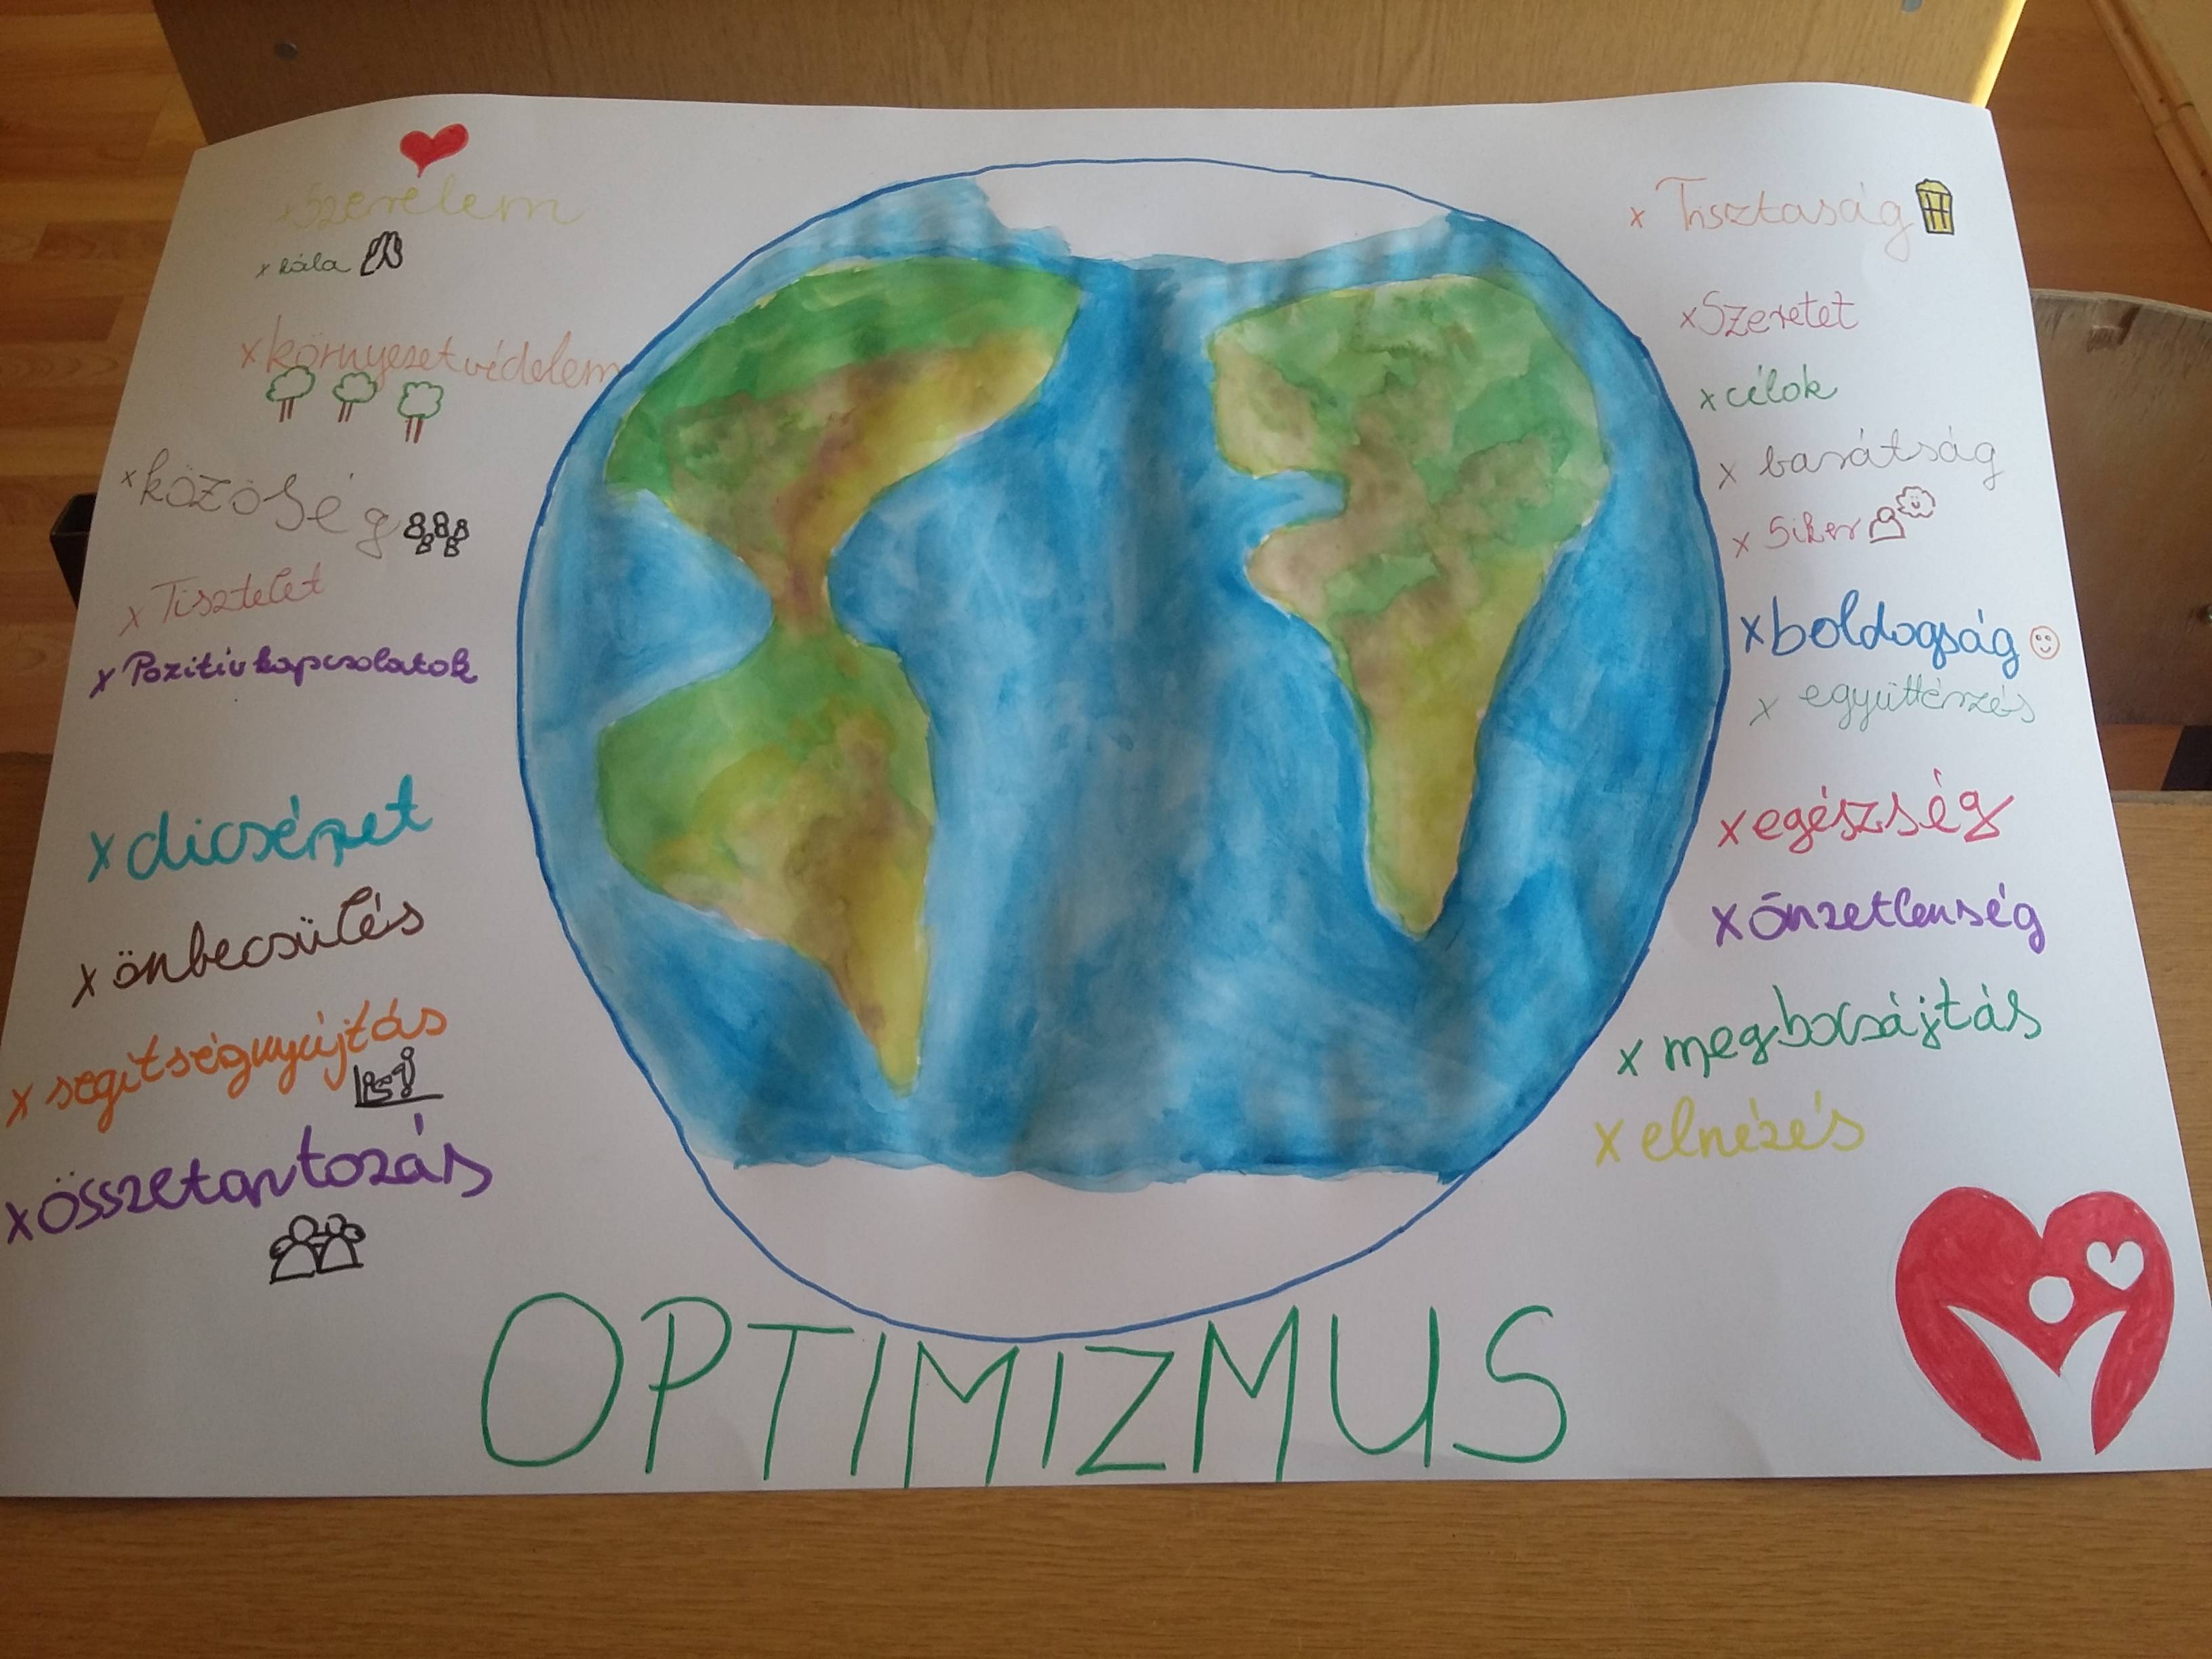 x Szerelem
x hála
x környezetvédelem
x közösség
x Tisztelet
x Pozitív kapcsolatok
x dicséret
x önbecsülés
x segítségnyújtás
x összetartozás
x Tisztaság
x Szeretet
x célok
x barátság
x Siker
x boldogság
x együttérzés
x egészség
x önzetlenség
x megbocsájtás
x elnézés
OPTIMIZMUS